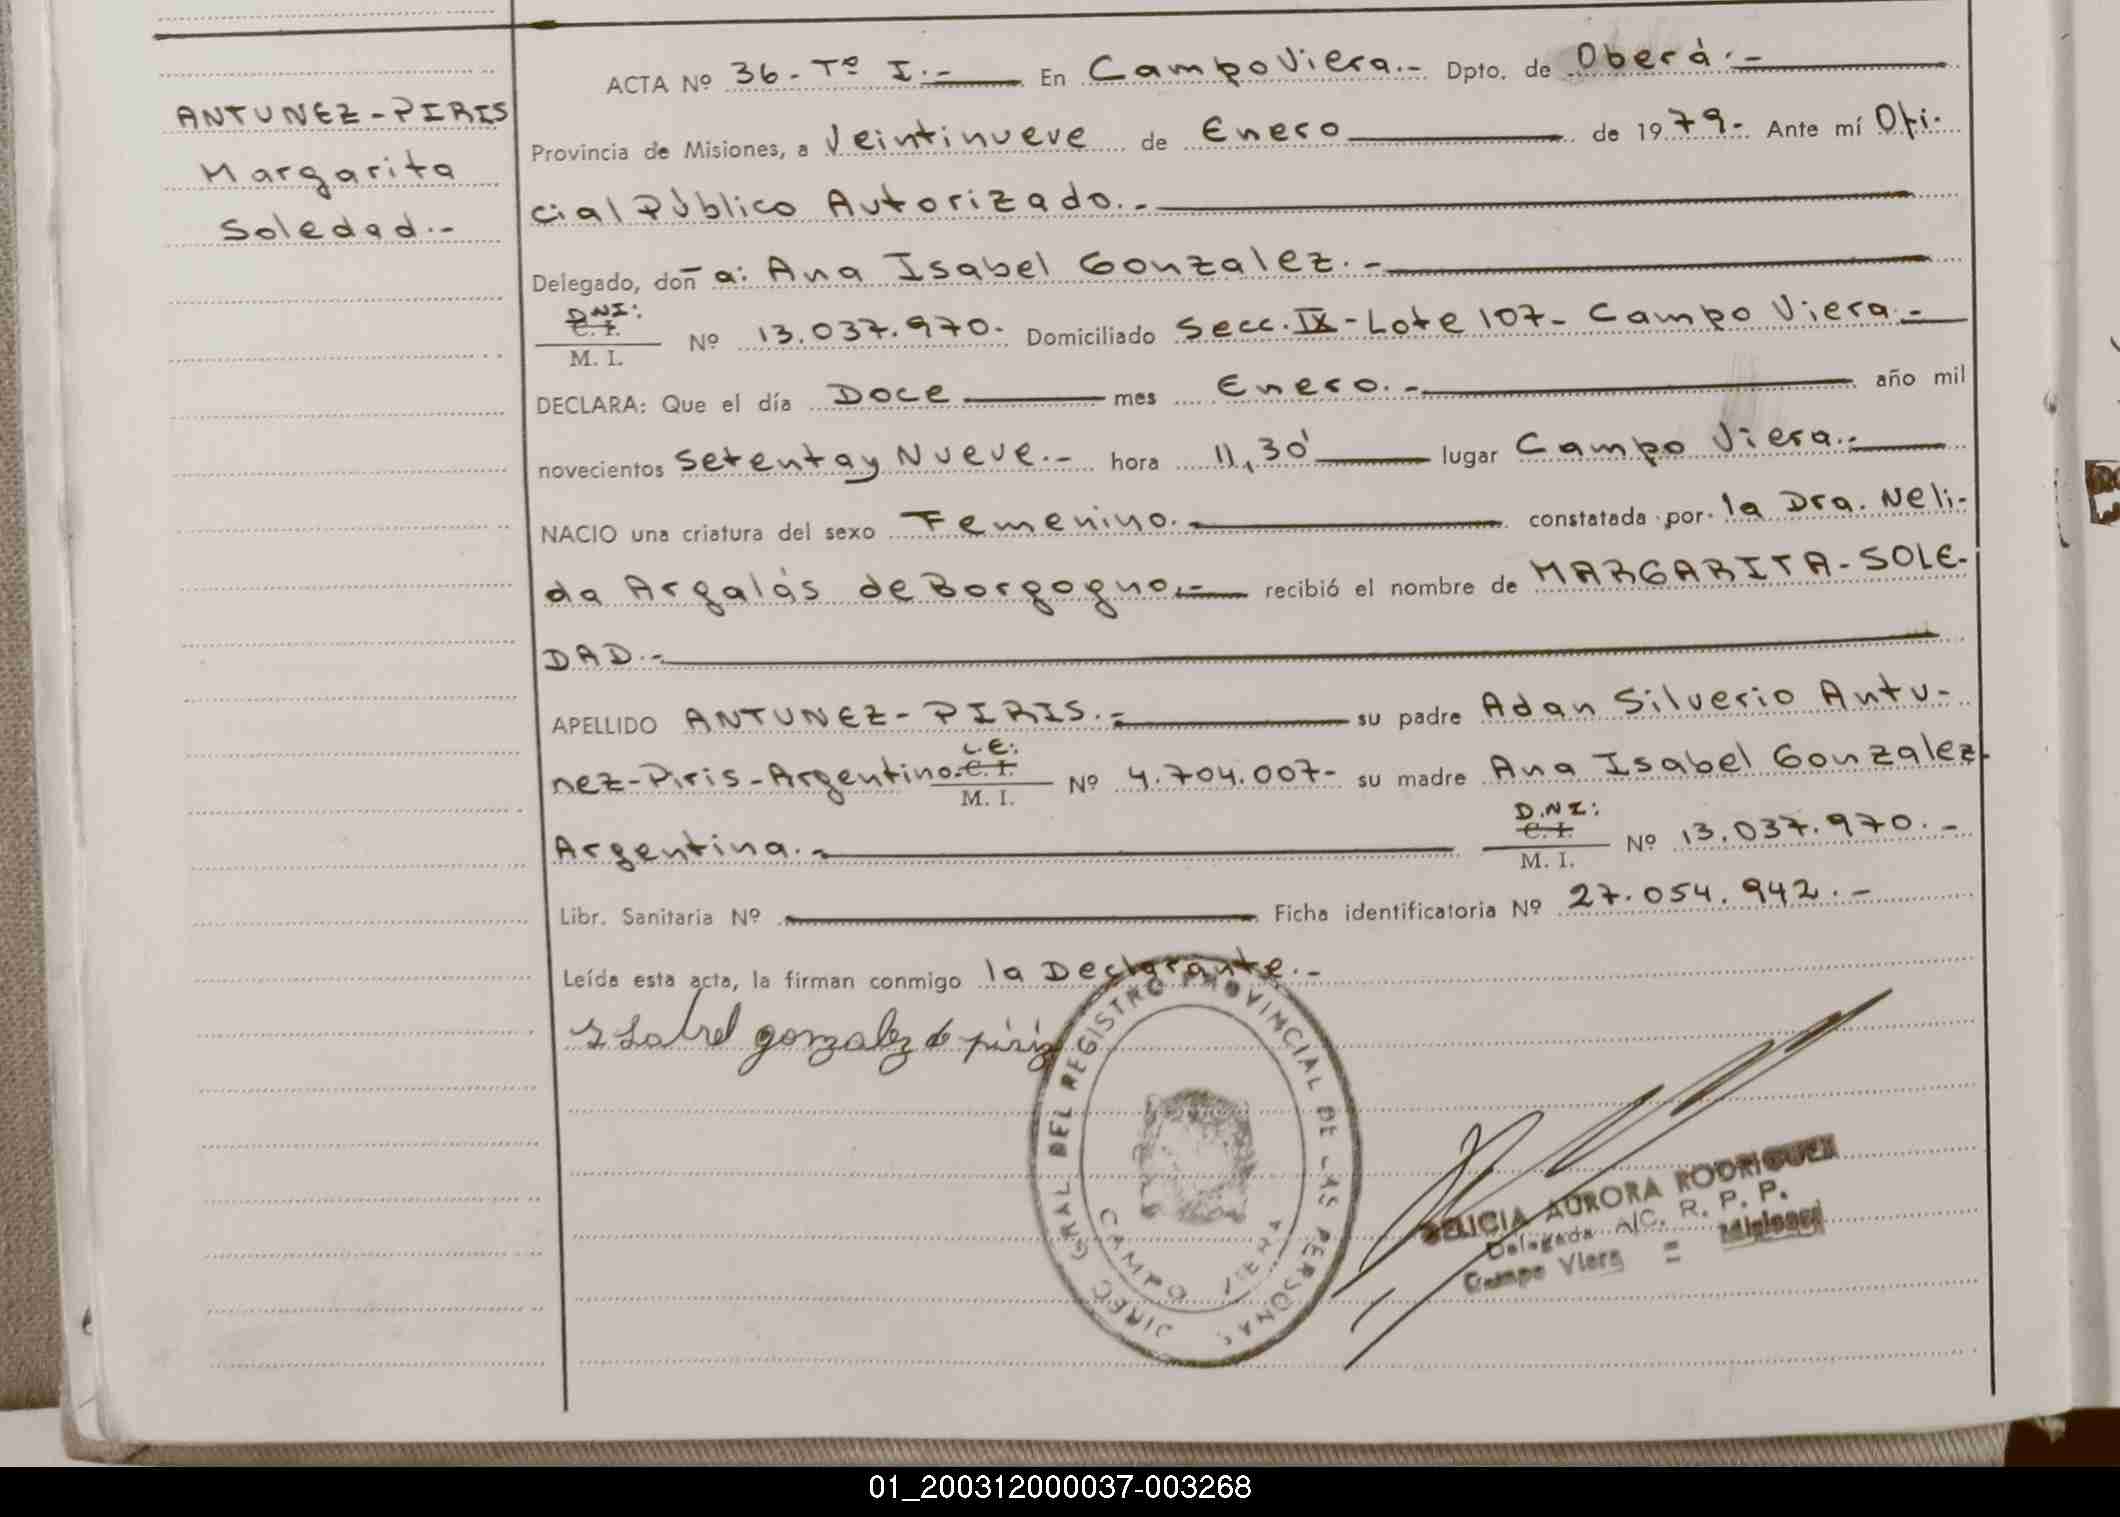 ANTUNEZ-PIRIS
Margarita
Soledad.-
ACTA Nº 36-Tº I.- En Campo Viera.- Dpto. de Oberá.-
Provincia de Misiones, a Veintinueve de Enero de 1979.- Ante mí Ofi-
cial Público Autorizado.-
Delegado, doña: Ana Isabel Gonzalez.-
DNI:
C. I.
M. I. Nº 13.037.970.- Domiciliado Secc. IX-Lote 107- Campo Viera.-
DECLARA: Que el día Doce mes Enero.- año mil
novecientos Setenta y Nueve.- hora 11,30' lugar Campo Viera.-
NACIO una criatura del sexo Femenino.- constatada por la Dra. Neli-
da Argalás de Borgogno.- recibió el nombre de MARGARITA-SOLE-
DAD.-
APELLIDO ANTUNEZ-PIRIS.- su padre Adan Silverio Antu-
L.E:
nez-Piris-Argentino.- C. I. Nº 4.704.007- su madre Ana Isabel Gonzalez-
M. I.
D.NI:
Argentina.- C. I. Nº 13.037.970.-
M. I.
Libr. Sanitaria Nº Ficha identificatoria Nº 27.054.942.-
Leída esta acta, la firman conmigo la Declarante.-
Isabel gonzalez de piriz
DIREC GRAL DEL REGISTRO PROVINCIAL DE LAS PERSONAS
CAMPO VIERA
DELICIA AURORA RODRIGUEZ
Delegada A/C. R. P. P.
Campo Viera = Misiones
01_200312000037-003268